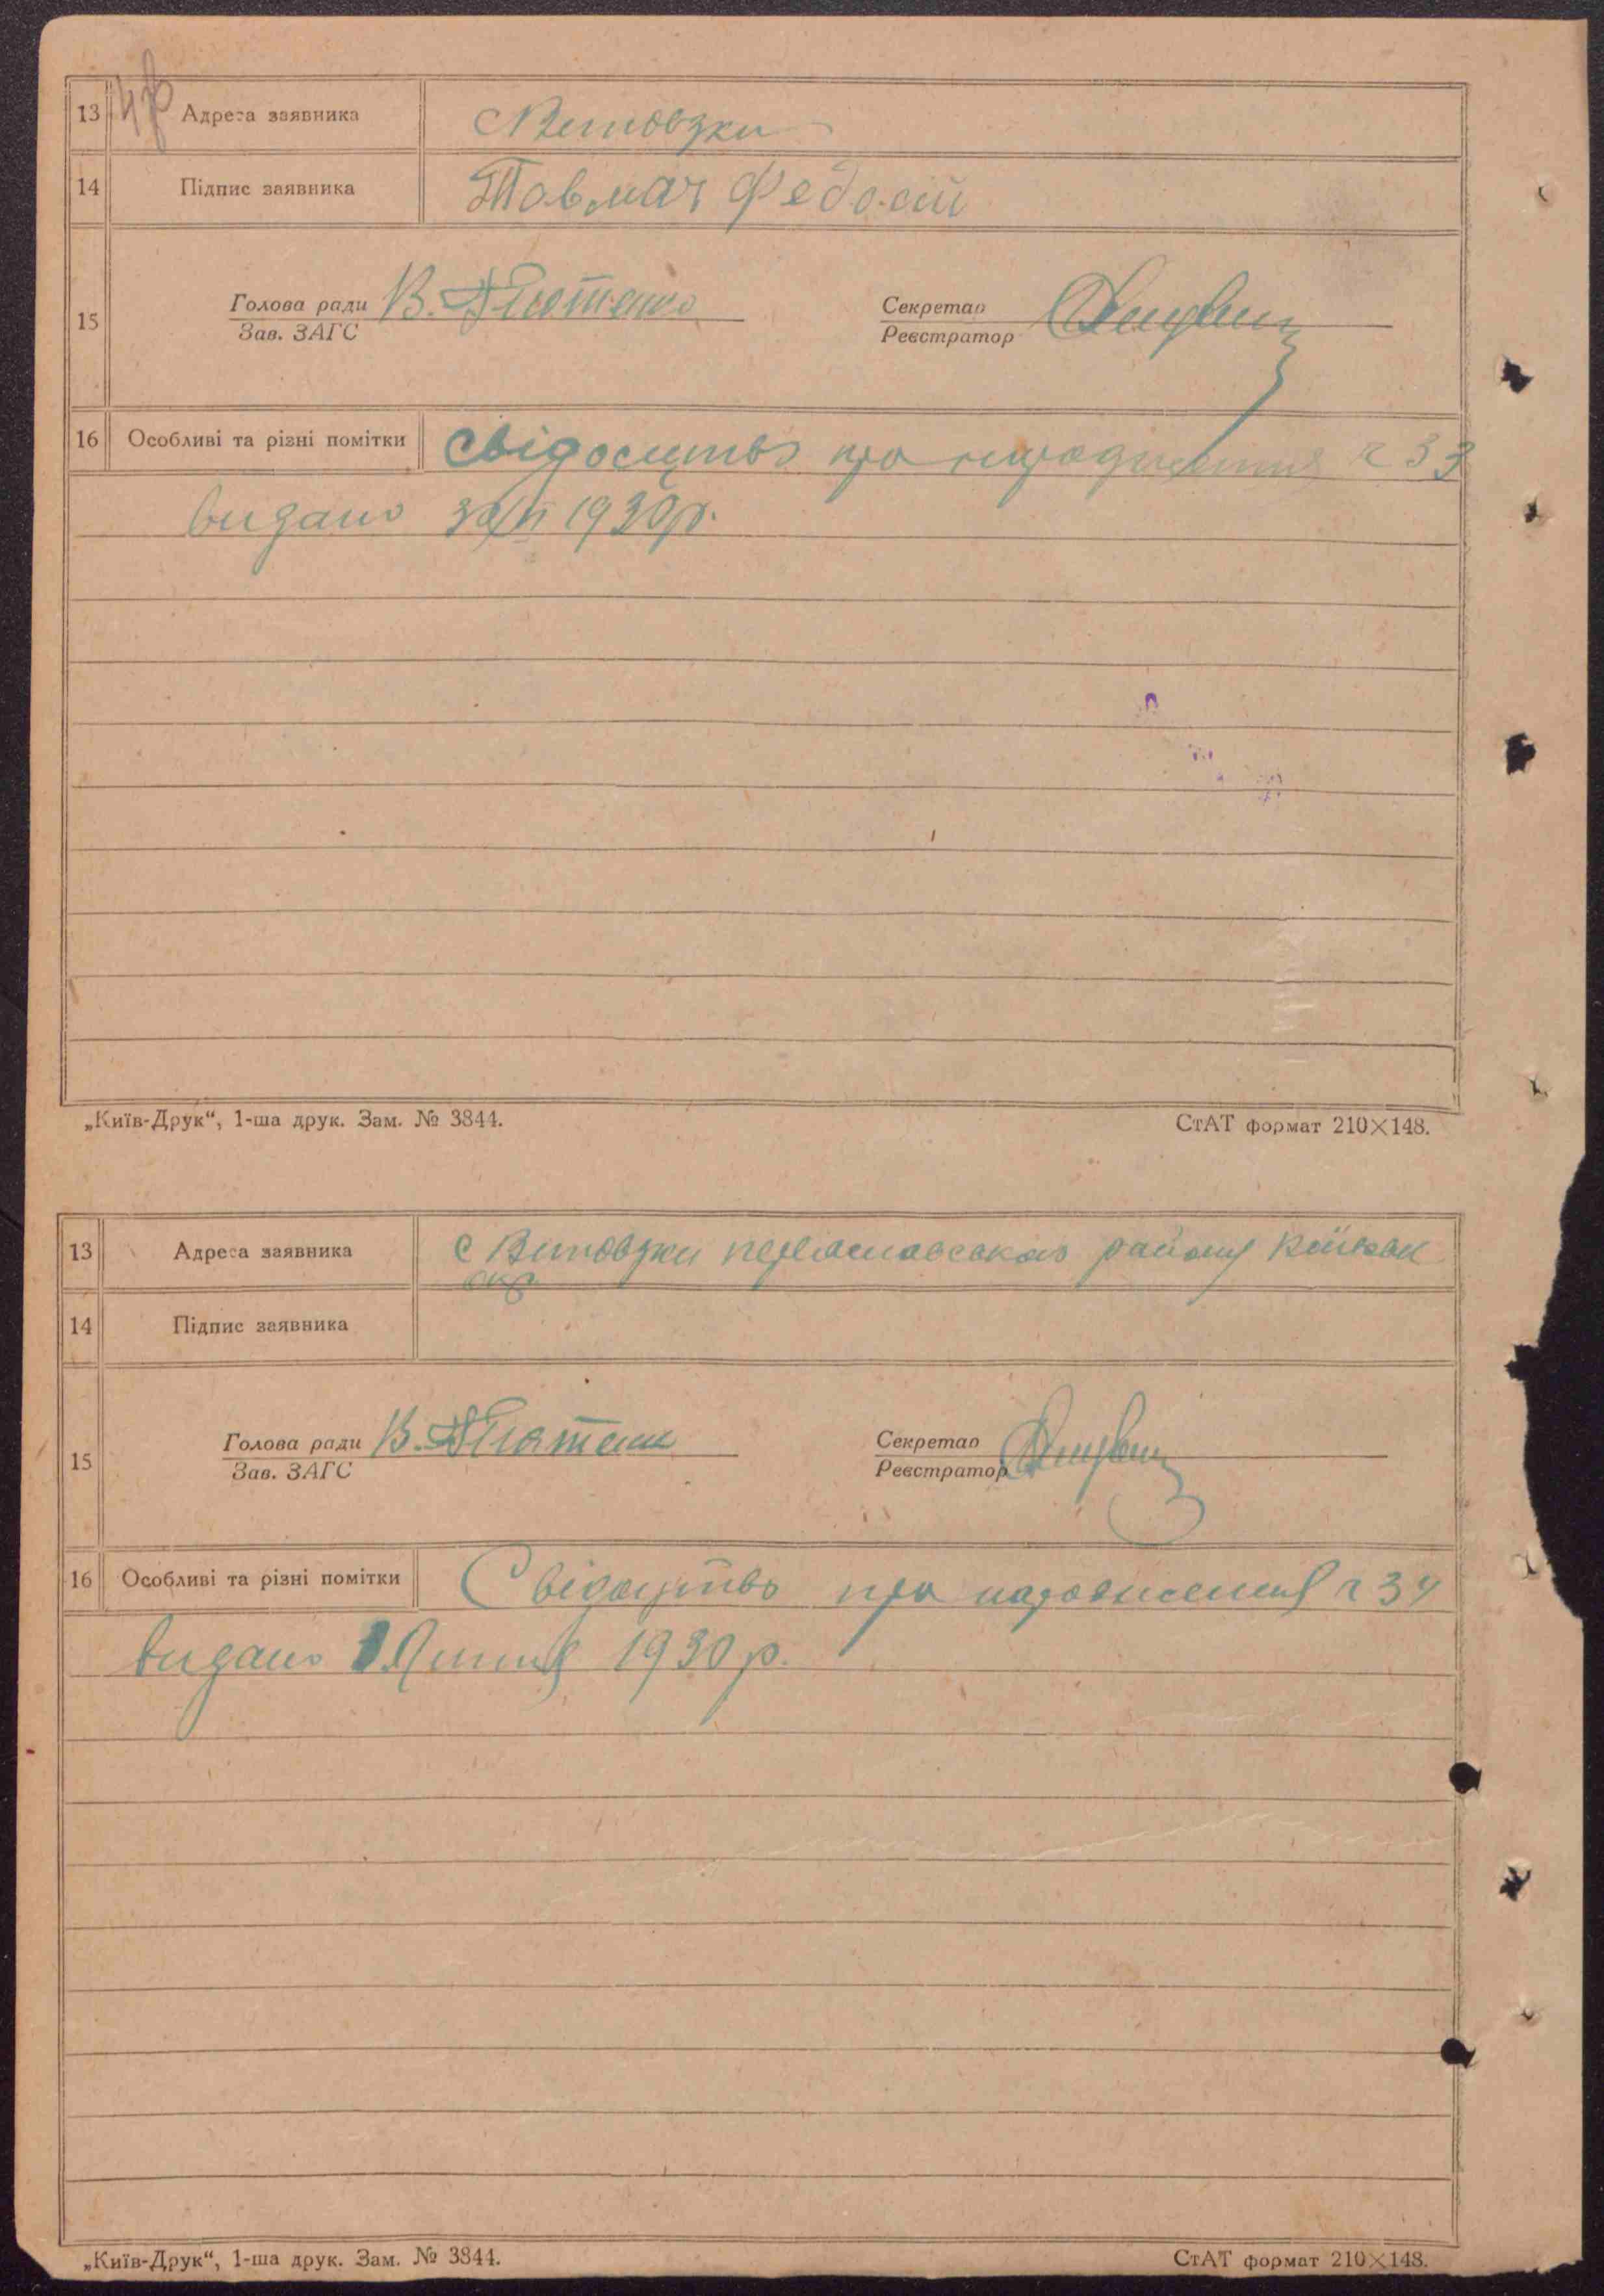 13 Адреса заявника с Витовзки
14 Підпис заявника Товмач Федосій
15 Голова ради В.
Зав. ЗАГС
Секретар
Реєстратор
16 Особливі та різні помітки Свідоцтво про народження ч 33
видано 30/VI 1930р.
„Київ-Друк“, 1-ша друк. Зам. № 3844. СтАТ формат 210×148.
13 Адреса заявника с Витовзки переяславсько району Київськ
окр
14 Підпис заявника
15 Голова ради В.
Зав. ЗАГС
Секретар
Реєстратор
16 Особливі та різні помітки Свідоцтво про народження ч 34
видано 1 Липня 1930 р.
„Київ-Друк“, 1-ша друк. Зам. № 3844. СтАТ формат 210×148.